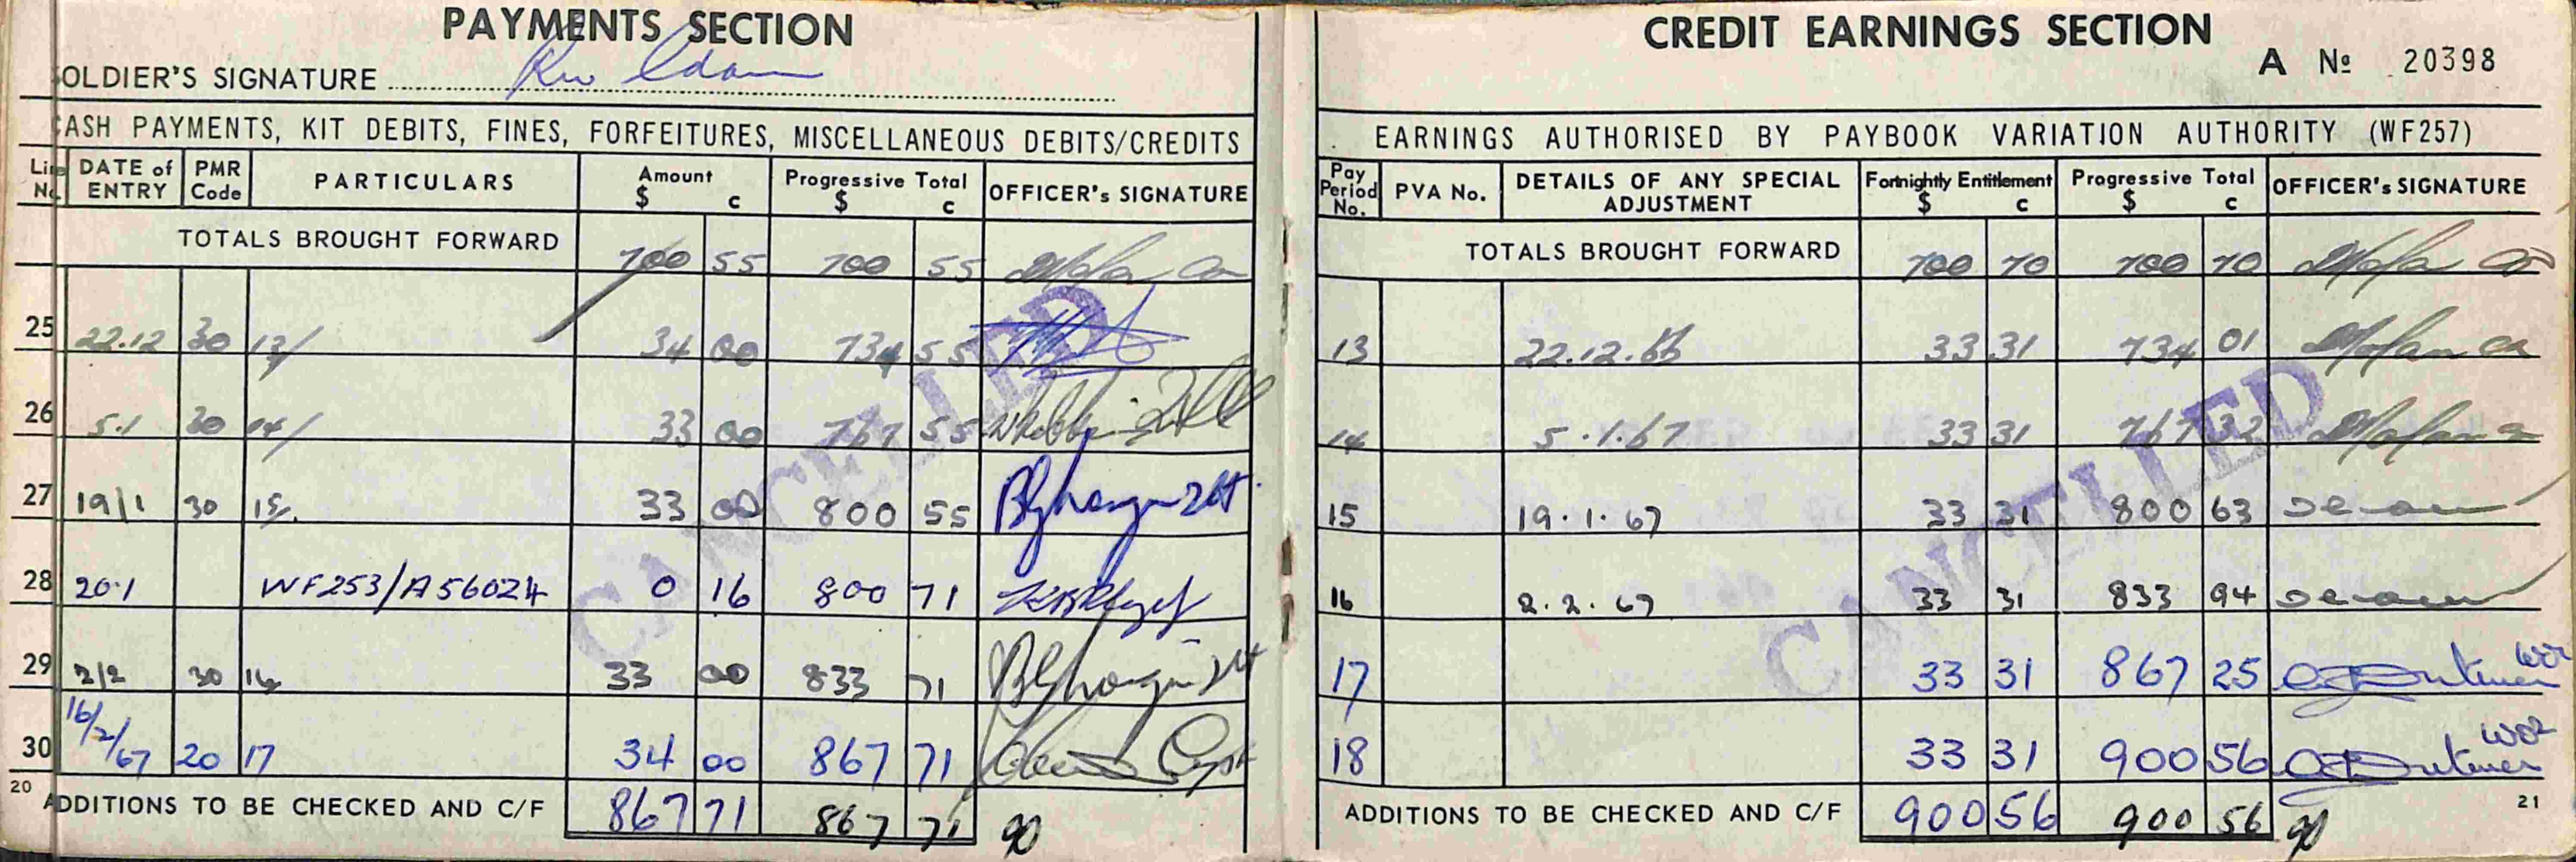 PAYMENTS SECTION
OLDIER'S SIGNATURE
ASH PAYMENTS, KIT DEBITS, FINES, FORFEITURES, MISCELLANEOUS DEBITS/CREDITS
Line No. DATE of ENTRY PMR Code PARTICULARS Amount $ c Progressive Total $ c OFFICER's SIGNATURE
TOTALS BROUGHT FORWARD 700 55 700 55
25 22.12 30 13/ 34 00 734 55
26 5.1 30 14/ 33 00 767 55
27 19/1 30 15/. 33 00 800 55
28 20.1 WF253/A56024 0 16 800 71
29 2/2 30 16 33 00 833 71
30 16/2/67 20 17 34 00 867 71
20 ADDITIONS TO BE CHECKED AND C/F 867 71 867 71
CANCELLED
CREDIT EARNINGS SECTION
A No 20398
EARNINGS AUTHORISED BY PAYBOOK VARIATION AUTHORITY (WF257)
Pay Period No. PVA No. DETAILS OF ANY SPECIAL ADJUSTMENT Fortnightly Entitlement $ c Progressive Total $ c OFFICER's SIGNATURE
TOTALS BROUGHT FORWARD 700 70 700 70
13 22.12.66 33 31 734 01
14 5.1.67 33 31 767 32
15 19.1.67 33 31 800 63
16 2.2.67 33 31 833 94
17 33 31 867 25 WO2
18 33 31 900 56 WO2
ADDITIONS TO BE CHECKED AND C/F 900 56 900 56
21
CANCELLED